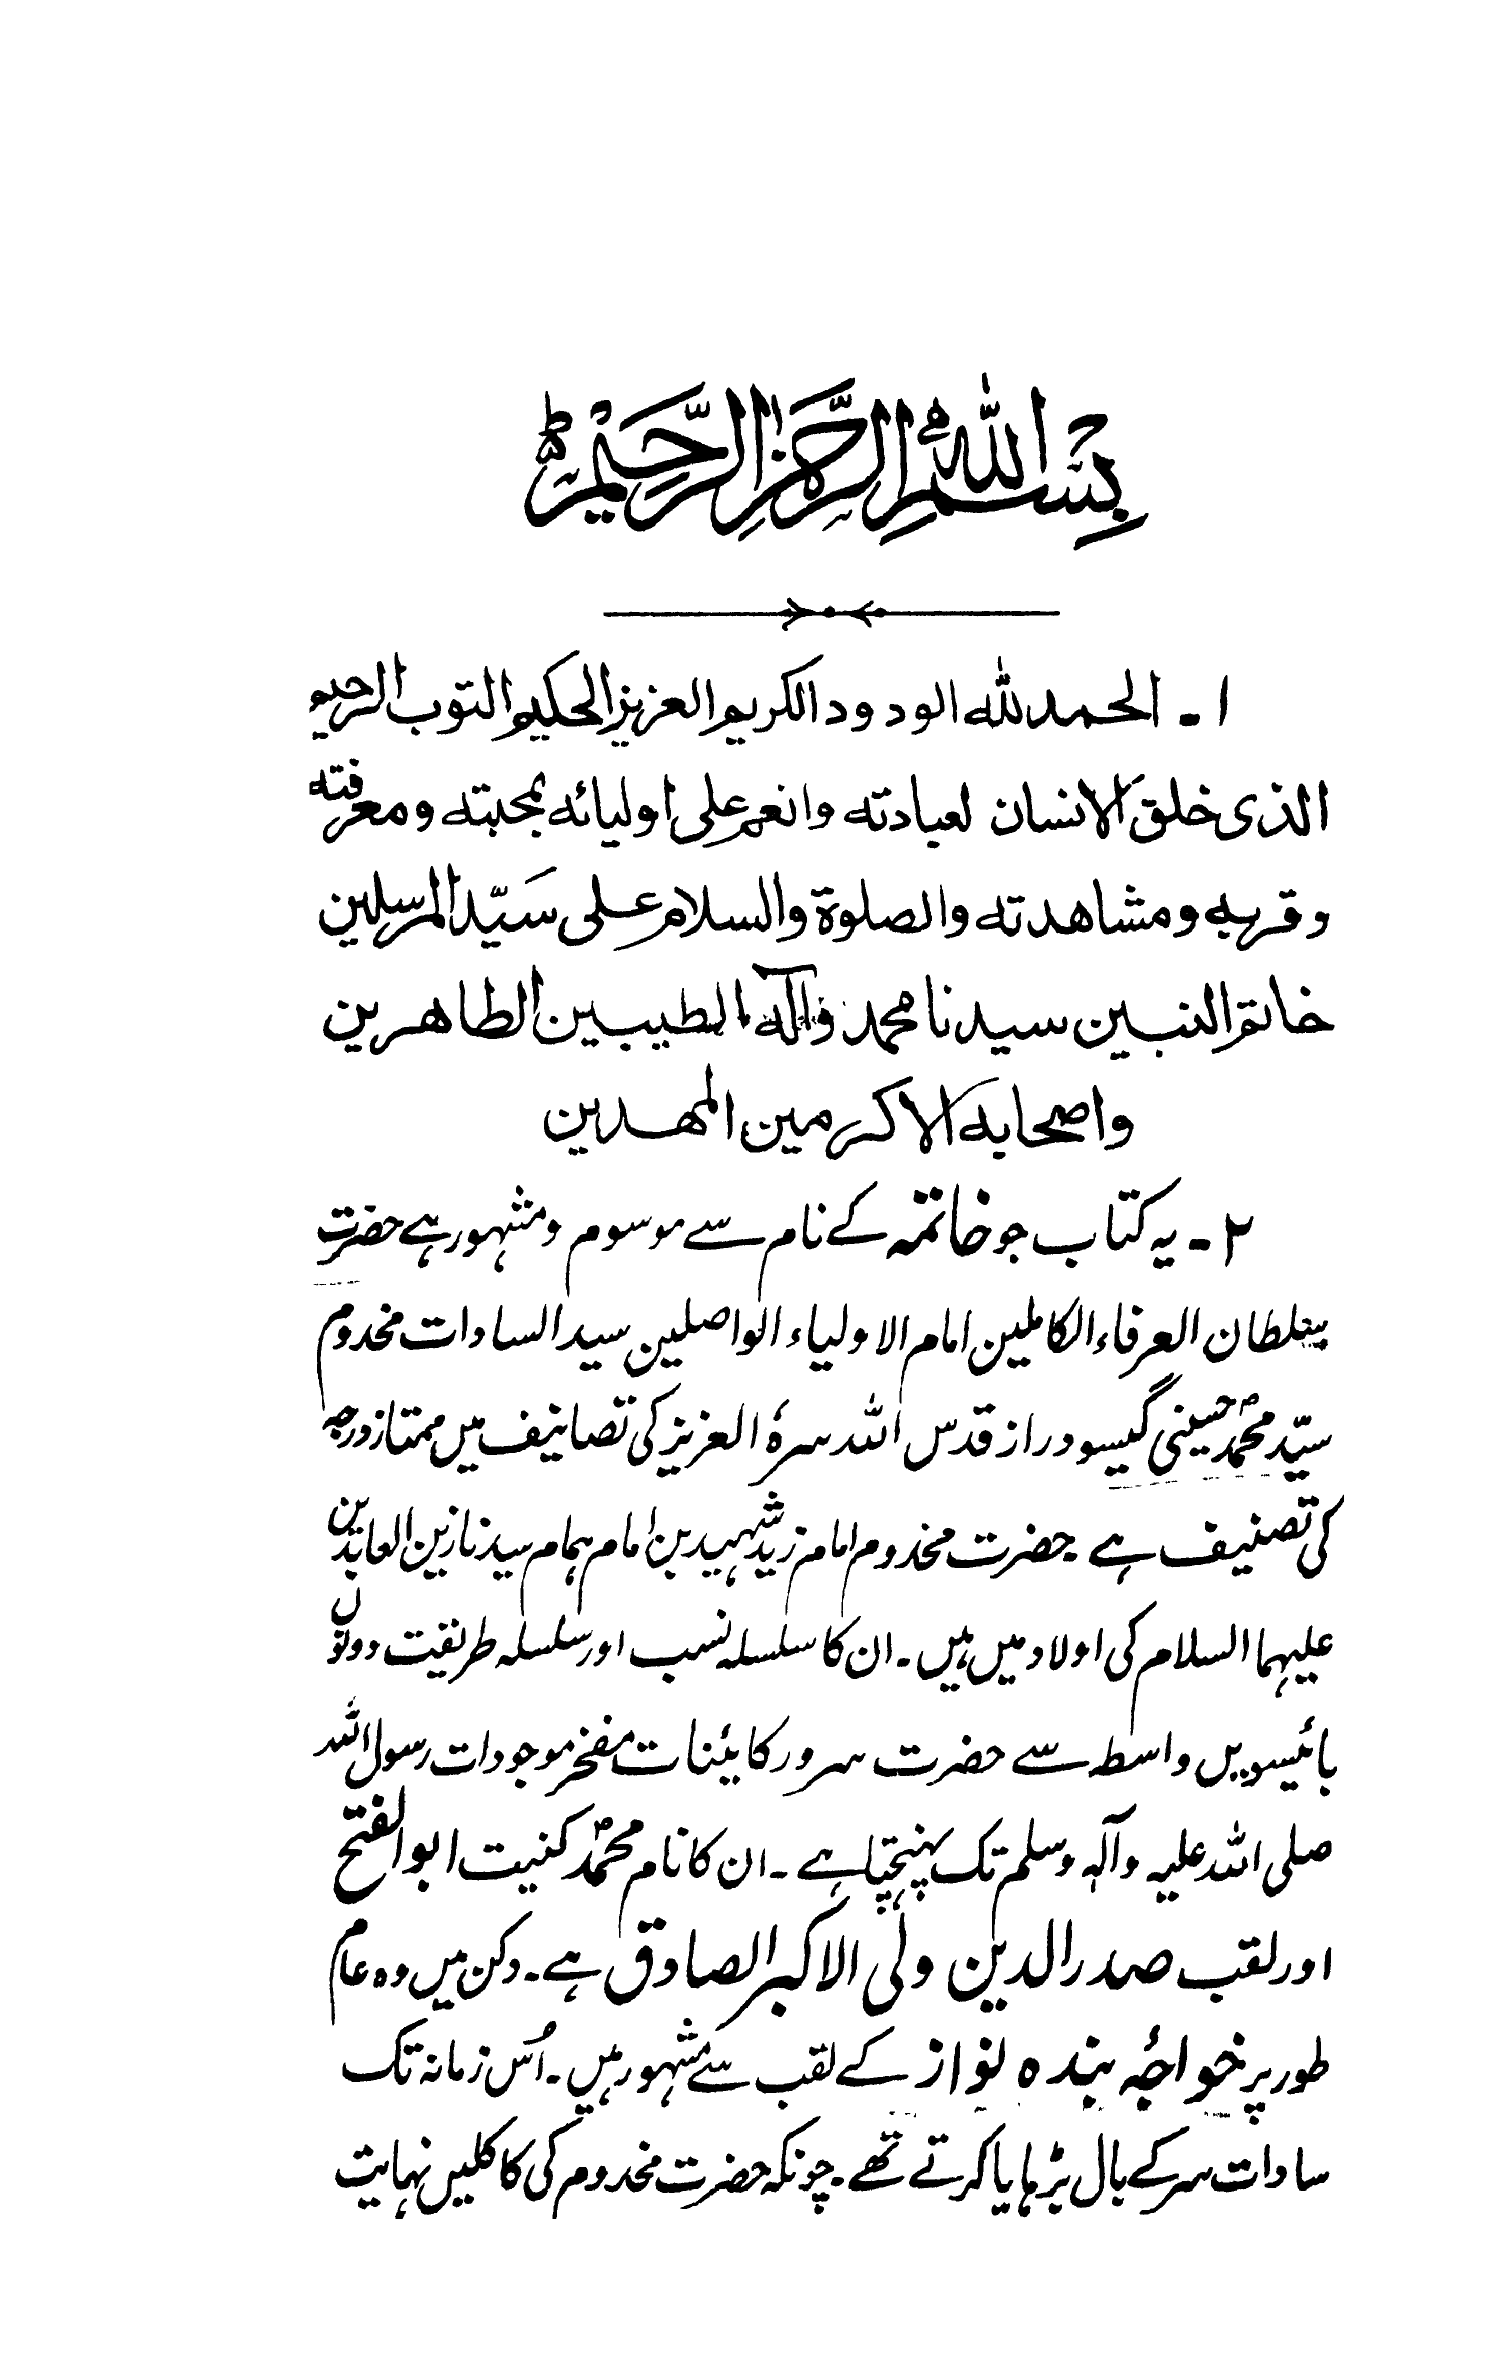 بِسْمِ اللهِ الرَّحْمٰنِ الرَّحِيْمِ ط
۱ - الحمد لله الودود الكريم العزيز الحكيم التوب الرحيم
الذى خلق الانسان لعبادته وانعم على اوليائه بمحبته ومعرفته
وقربه ومشاهدته والصلوة والسلام على سَيّد المرسلين
خاتم النبين سيدنا محمد وآله الطيبين الطاهرين
واصحابه الاكرمين المهدين
۲ - یہ کتاب جو خاتمہ کے نام سے موسوم و مشہور ہے حضرت
سلطان العرفاء الکاملین امام الاولیاء الواصلین سید السادات مخدوم
سیّد محمدؐ حسینی گیسو دراز قدس اللہ سرہٗ العزیز کی تصانیف میں ممتاز درجہ
کی تصنیف ہے ۔ حضرت مخدوم امام زید شہید بن امام ہمام سیدنا زین العابدین
علیہما السلام کی اولاد میں ہیں ۔ ان کا سلسلہ نسب اور سلسلہ طریقت دونوں
بائیسویں واسطہ سے حضرت سرور کائینات مفخر موجودات رسول اللہ
صلی اللہ علیہ وآلہٖ وسلم تک پہنچتا ہے ۔ ان کا نام محمدؐ کنیت ابو الفتح
اور لقب صدر الدین ولی الاکبر الصادق ہے ۔ دکن میں وہ عام
طور پر خواجۂ بندہ نواز کے لقب سے مشہور ہیں ۔ اُس زمانہ تک
سادات سر کے بال بڑہایا کرتے تھے ۔ چونکہ حضرت مخدوم کی کاکلیں نہایت